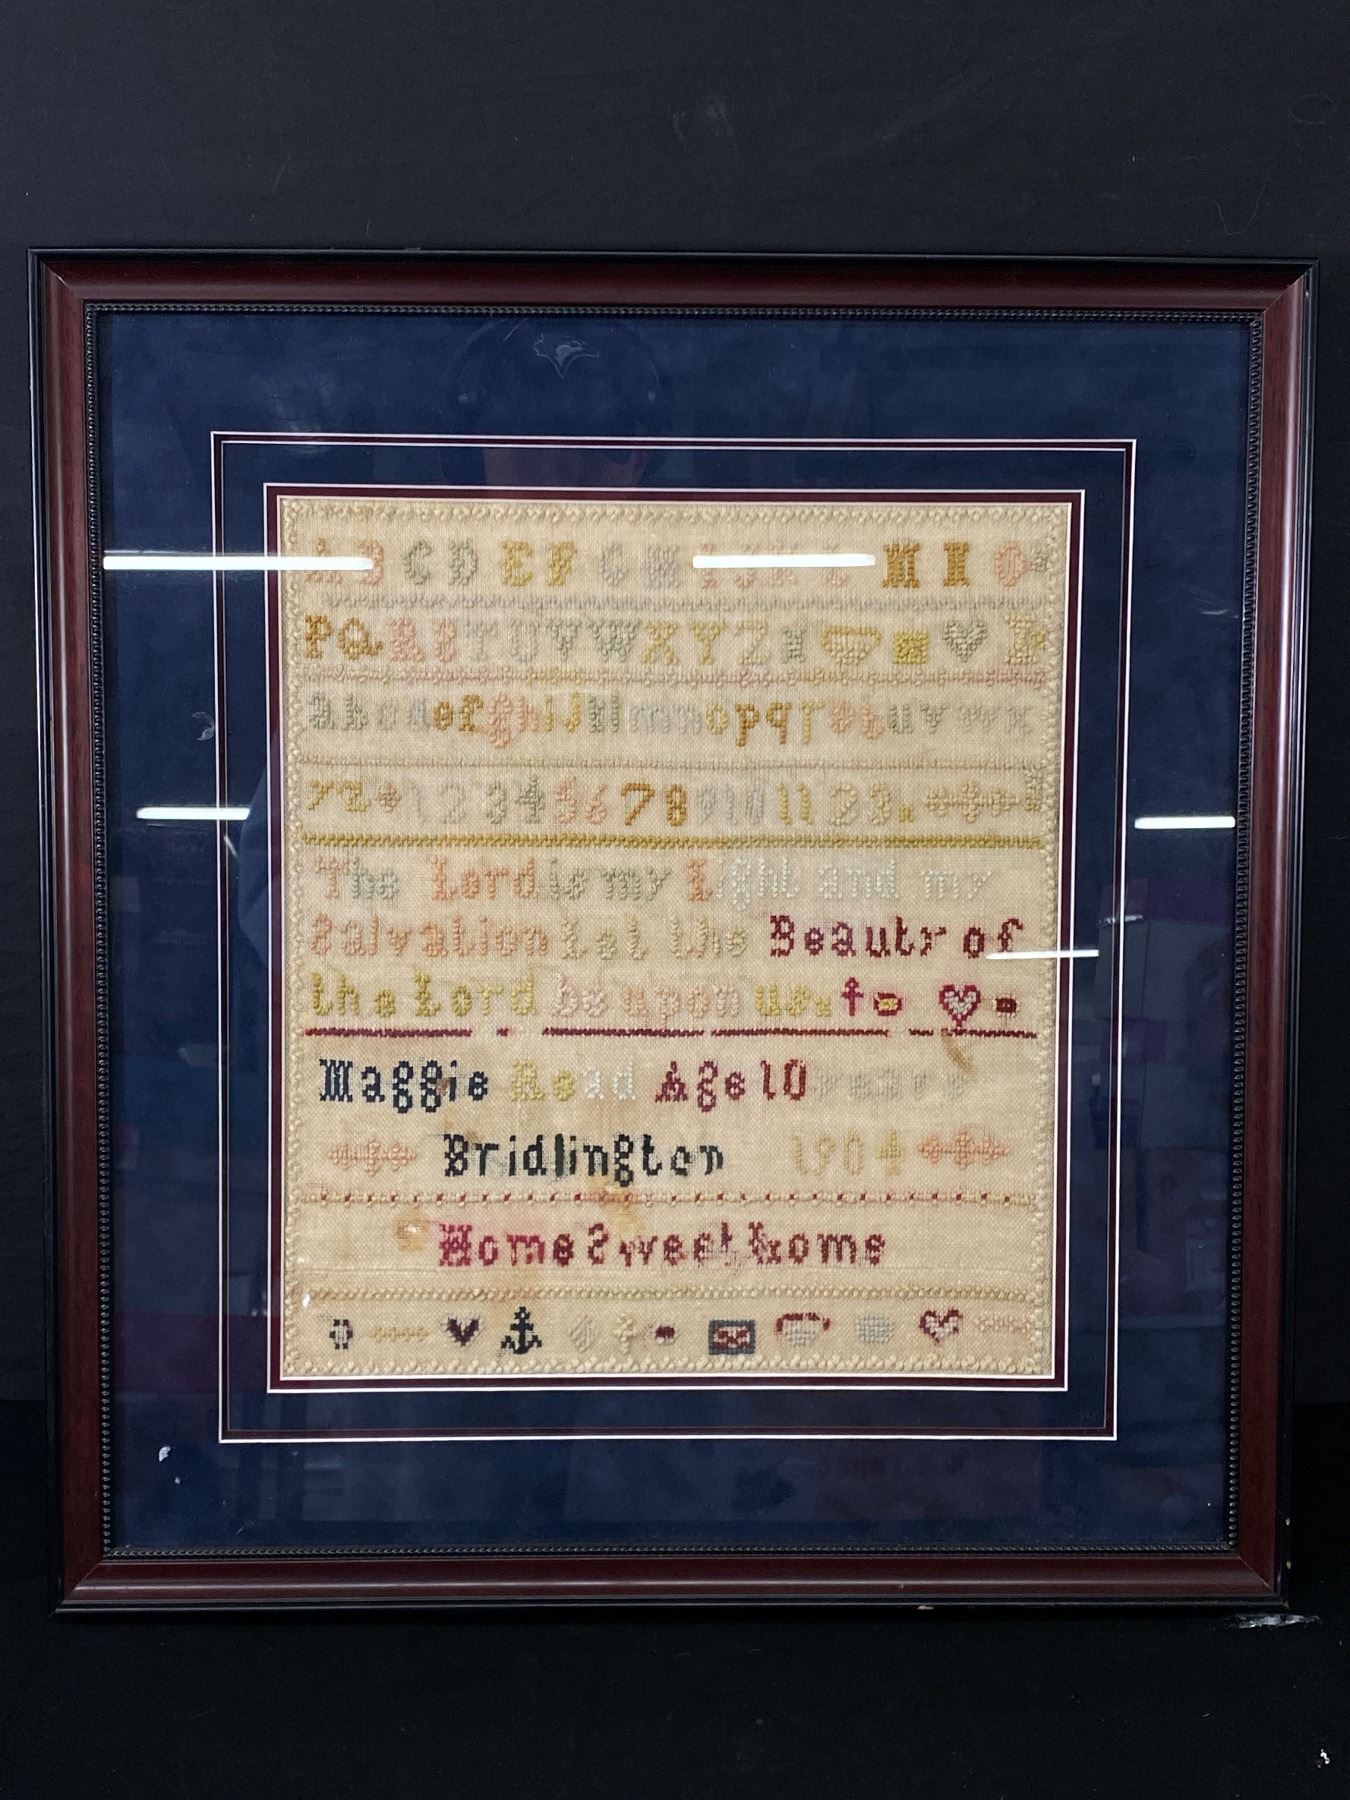 A B C D E F G H I J K L M N O
P Q R S T U V W X Y Z
a b c d e f g h i j k l m n o p q r s t u v w x
y z 1 2 3 4 5 6 7 8 9 10 11 2 3
The Lord is my Light and my
Salvation Let the Beauty of
the Lord be upon us
Maggie Read Age 10 years
Bridlington 1904
Home Sweet Home